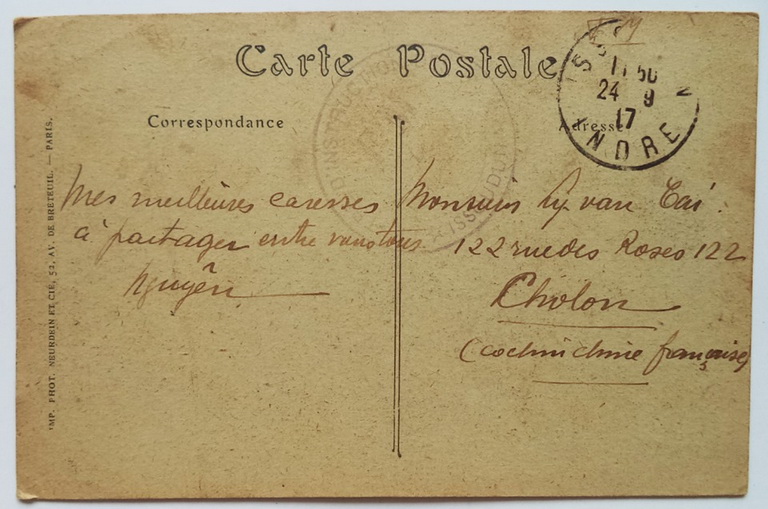 Carte Postale
Correspondance
Adresse
11 50
24 9
17
INDRE
Mes meilleures caresses
à partager entre vous tous
Nguyên
Monsieur Ly van
122 rue des Roses 122
Cholon
(Cochinchine française)
IMP. PHOT. NEURDEIN ET CIE, 52, AV. DE BRETEUIL. — PARIS.